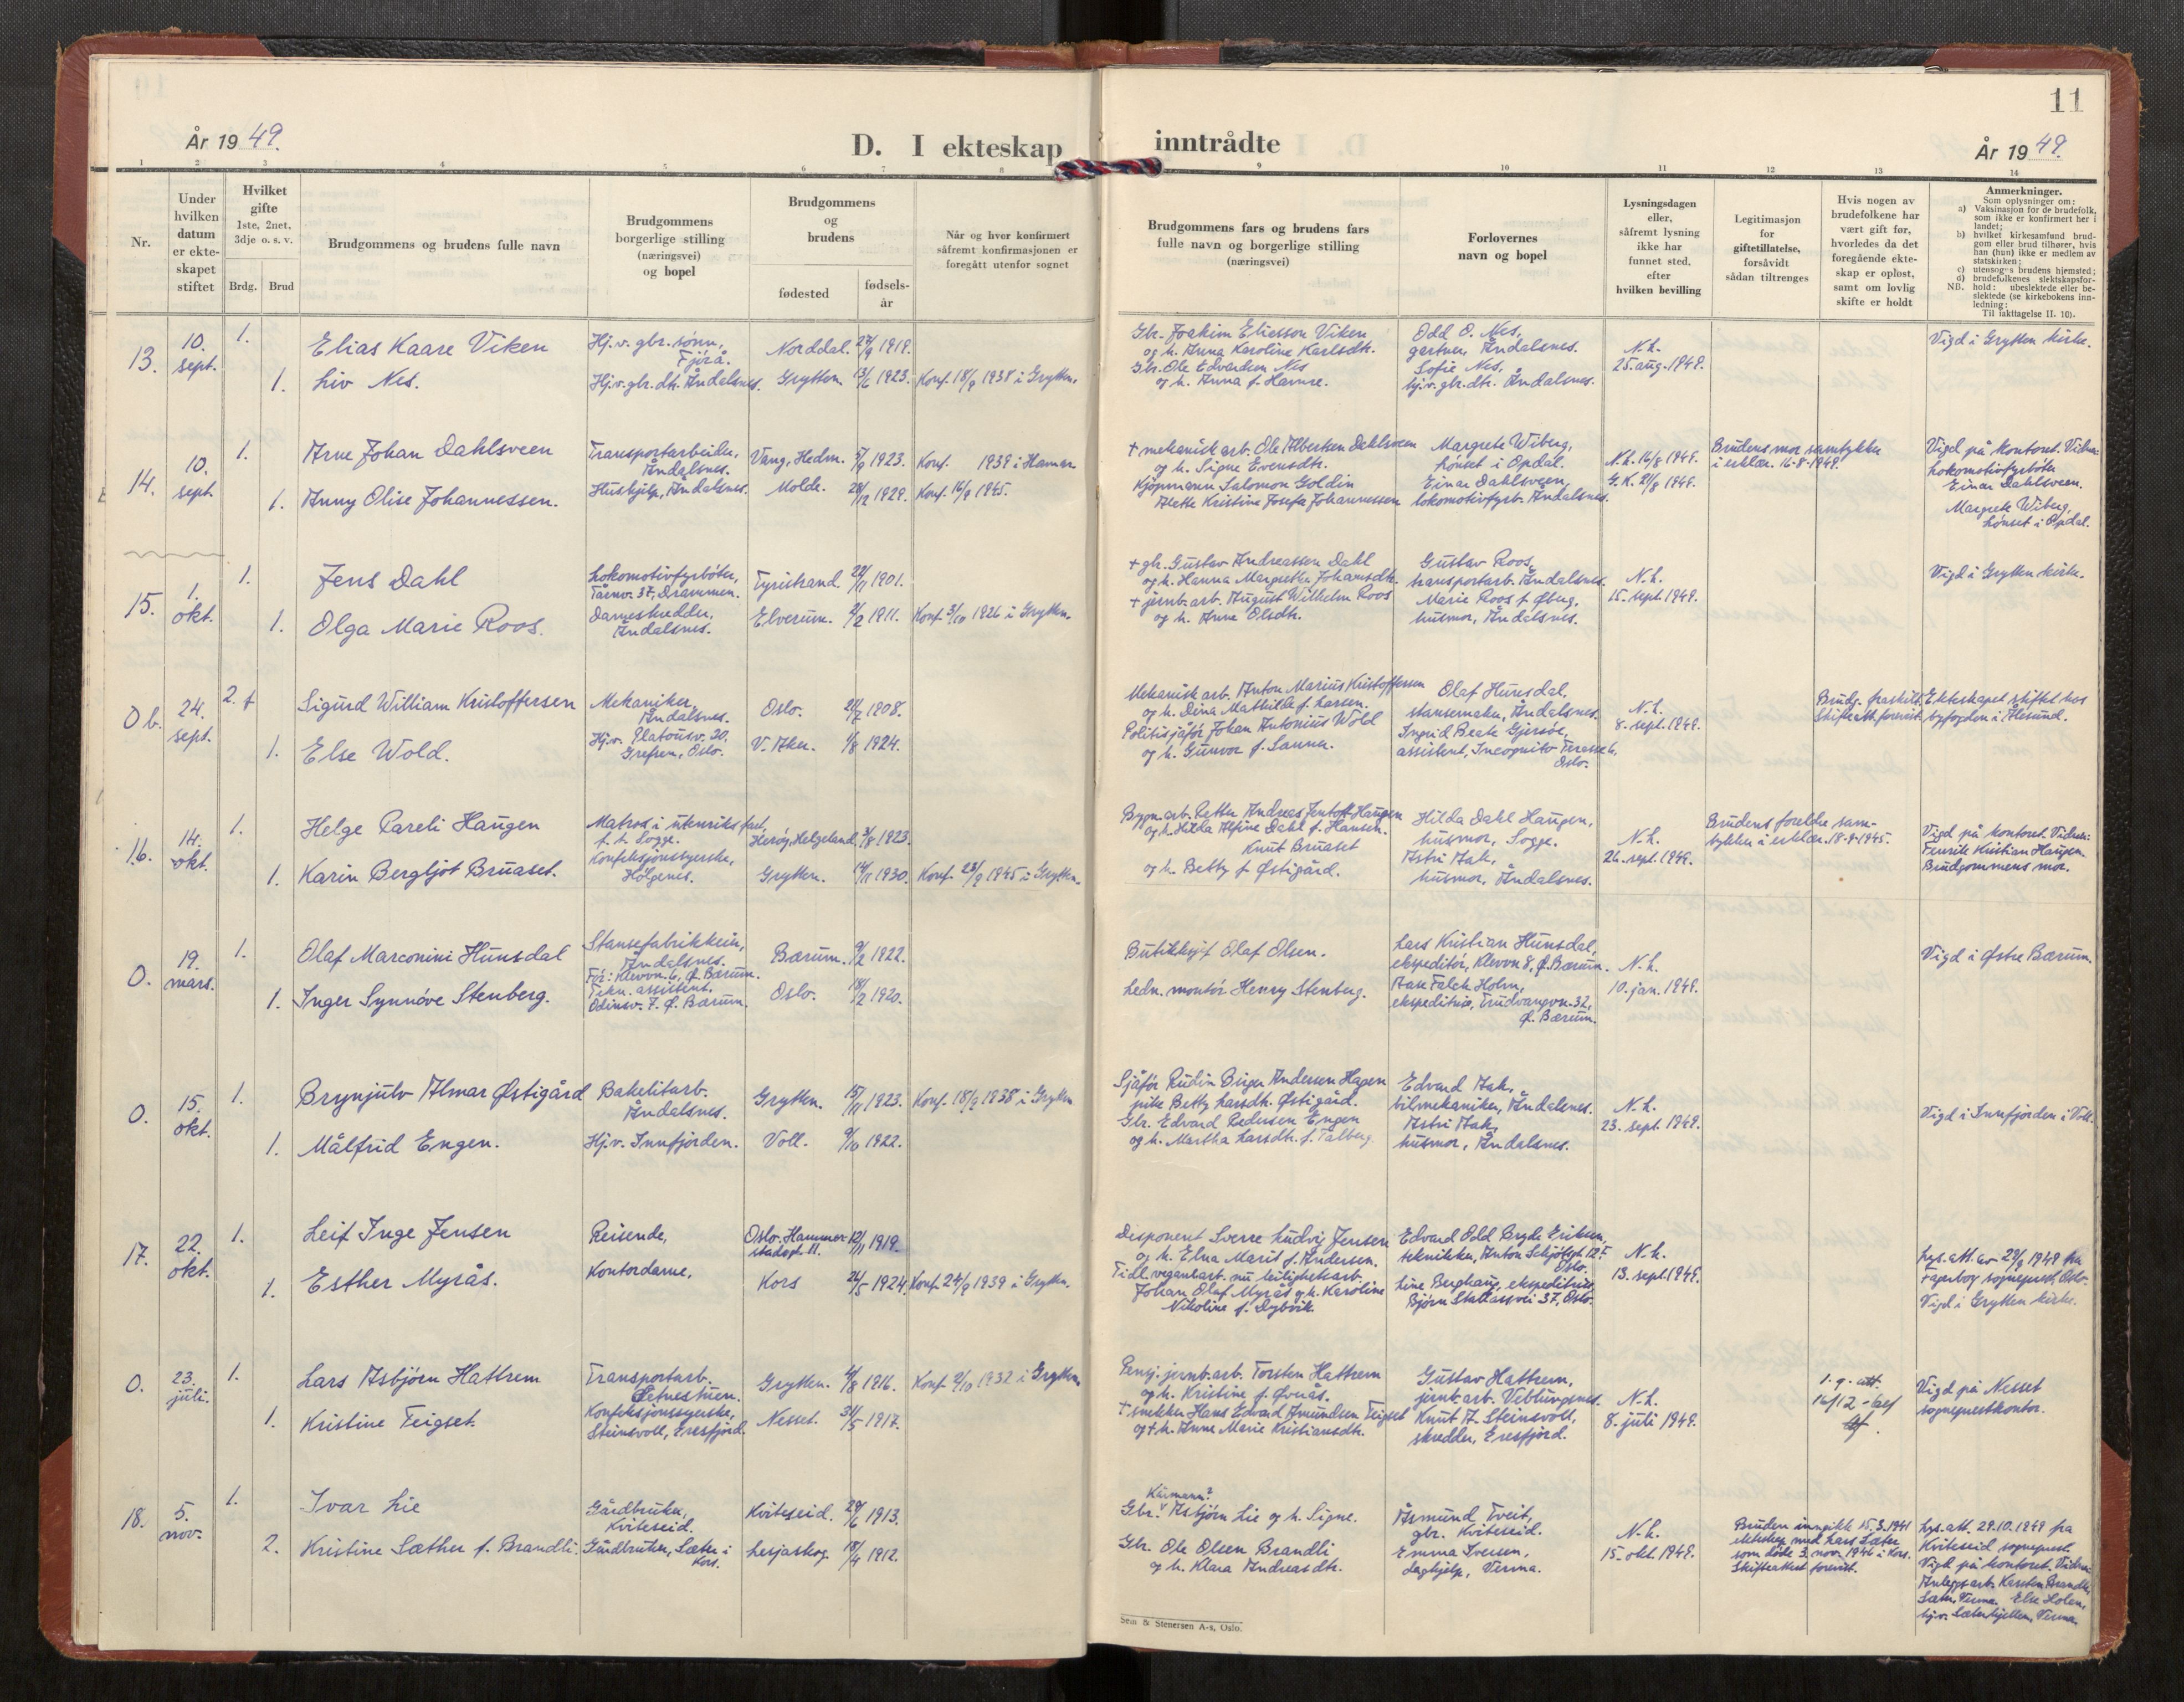 11
År 1949.
D. I ekteskap inntrådte
År 1949.
1 2 3 4 5 6 7 8 9 10 11 12 13 14
Nr.
Under hvilken datum er ekte-skapet stiftet
Hvilket gifte 1ste, 2net, 3dje o. s. v.
Brdg. Brud
Brudgommens og brudens fulle navn
Brudgommens borgerlige stilling (næringsvei) og bopel
Brudgommens og brudens
fødested
fødsels-år
Når og hvor konfirmert såfremt konfirmasjonen er foregått utenfor sognet
Brudgommens fars og brudens fars fulle navn og borgerlige stilling (næringsvei)
Forlovernes navn og bopel
Lysningsdagen eller, såfremt lysning ikke har funnet sted, efter hvilken bevilling
Legitimasjon for giftetillatelse, forsåvidt sådan tiltrenges
Hvis nogen av brudefolkene har vært gift før, hvorledes da det foregående ekte-skap er opløst, samt om lovlig skifte er holdt
Anmerkninger.
Som oplysninger om:
a) Vaksinasjon for de brudefolk, som ikke er konfirmert her i landet;
b) hvilket kirkesamfund brud-gom eller brud tilhører, hvis han (hun) ikke er medlem av statskirken;
c) utensogns brudens hjemsted;
d) brudefolkenes slektskapsfor-hold: ubeslektede eller be-slektede (se kirkebokens inn-ledning:
NB.
Til iakttagelse II. 10).
13. 10. sept. 1. Elias Kaare Viken
Hj.v. gbr. sønn, Fjørå.
Norddal. 27/9 1919.
Gbr. Joakim Eliesson Viken
og h. Anna Karoline Karlsdtr.
Odd O. Nes,
gartner, Åndalsnes.
N.k.
25. aug. 1949.
Vigd i Grytten kirke.
1. Liv Nes.
Hj.v. gbr. dtr. Åndalsnes. Grytten. 13/6 1923. Konf. 18/9 1938 i Grytten.
Gbr. Ole Edvardsen Nes
og h. Anna f. Hamre.
Sofie Nes,
hj.v. gbr. dtr. Åndalsnes.
14. 10. sept. 1. Arne Johan Dahlsveen
Transportarbeider, Åndalsnes.
Vang, Hedm. 7/9 1923. Konf. 1939 i Hamar
+ mekanisk arb. Ole Albertsen Dahlsveen
og h. Signe Evensdtr.
Margrete Wiberg,
Lønset i Opdal.
N.k. 16/8 1949.
G.K. 21/8 1949.
Brudens mor samtykke
i erklær. 16-8-1949.
Vigd på kontoret. Vidner:
Lokomotivfyrbøter
Einar Dahlsveen.
Margrete Wiberg,
Lønset i Opdal.
1. Anny Olise Johannessen.
Hushjelp, Åndalsnes. Molde. 28/12 1929. Konf. 16/9 1945.
Kjøpmann Salomon Goldin
Alette Kristine Josefa Johannessen
Einar Dahlsveen,
lokomotivfyrb. Åndalsnes.
15. 1. okt. 1. Jens Dahl
Lokomotivfyrbøter,
Tårnv. 37, Drammen.
Tyristrand. 22/11 1901.
+ gbr. Gustav Andreassen Dahl
og h. Hanna Margrethe Johansdtr.
Gustav Roos,
transportarb. Åndalsnes.
N.k.
15. sept. 1949.
Vigd i Grytten kirke.
1. Olga Marie Roos.
Dameskredder, Åndalsnes.
Elverum. 2/2 1911. Konf. 3/10 1926 i Grytten.
+ jernb. arb. August Wilhelm Roos
og h. Anne Olsdtr.
Marie Roos f. Øberg,
husmor, Åndalsnes.
Ob. 24. sept. 2. f Sigurd William Kristoffersen
Mekaniker, Åndalsnes.
Oslo. 1908.
Mekanisk arb. Anton Marius Kristoffersen
og h. Dina Mathilde f. Larsen.
Olaf Hunsdal,
stansemaker, Åndalsnes.
N.k.
8. sept. 1949.
Brudg. fraskilt.
Skifteatt. forevist.
Ekteskapet skiftet hos
byfogden i Ålesund.
1. Else Wold.
Hj.v. Platousv. 30.
Grefsen, Oslo.
V. Aker. 1/8 1924.
Politisjåfør Johan Antonius Wold
og h. Gunvor f. Sanner.
Ingrid Beate Gjersøe,
assistent, Incognito Terasse 6,
Oslo.
16. 14. okt. 1. Helge Pareli Haugen
Matros i utenriks fart,
p. t. Sogge.
Herøy, Helgeland. 3/8 1923.
Bygn. arb. Petter Andreas Jentoft Haugen
og h. Hilda Alfine Dahl f. Hansen.
Hilda Dahl Haugen,
husmor, Sogge.
N.k.
26. sept. 1949.
Brudens foreldre sam-
tykker i erklær. 18-9-1945.
Vigd på kontoret. Vidner:
Fenrik Kristian Haugen.
Brudgommens mor.
1. Karin Bergljot Bruaset.
Konfeksjonssyerske,
Holgenes.
Grytten. 14/11 1930. Konf. 23/9 1945 i Grytten.
Knut Bruaset
og h. Betty f. Østigård.
Astri Aak,
husmor, Åndalsnes.
O. 19. mars. 1. Olaf Marconini Hunsdal
Stansefabrikkeier,
Åndalsnes.
Før: Klevvn. 6, Ø. Bærum.
Bærum. 9/2 1922.
Butikksjef Olaf Olsen.
Lars Kristian Hunsdal,
ekspeditør, Klevvn 8, Ø. Bærum.
N.k.
10. jan. 1949.
Vigd i Østre Bærum.
1. Inger Synnøve Stenberg.
Tekn. assistent.
Odinsv. 7. Ø. Bærum.
Oslo. 18/2 1920.
Ledn. montør Henry Stenberg.
Aase Falch Holm,
ekspeditrise, Trudvangvn. 32,
Ø. Bærum.
O. 15. okt. 1. Brynjulv Almar Østigård
Bakelitarb.
Åndalsnes.
Grytten. 15/11 1923. Konf. 18/9 1938 i Grytten
Sjåfør Rudin Birger Andersen Hagen
pike Betty Larsdtr. Østigård.
Edvard Aak,
bilmekaniker, Åndalsnes.
N.k.
23. sept. 1949.
Vigd i Innfjorden i Voll.
1. Målfrid Engen.
Hj.v. Innfjorden. Voll. 9/10 1922.
Gbr. Edvard Pedersen Engen
og h. Martha Larsdtr. f. Talberg
Astri Aak,
husmor, Åndalsnes.
17. 22. okt. 1. Leif Inge Jensen
Reisende,
Oslo. Hammer-
stadsgt. 11.
12/11 1919.
Disponent Sverre Ludvig Jensen
og h. Elna Marit f. Andersen.
Edvard Odd Bryde Eriksen,
tekniker, Anton Schjøthsgt. 12 F.
Oslo.
N.k.
13. sept. 1949.
Lys. att. av 29/9 1949 fra
Fagerborg sogneprest, Oslo.
Vigd i Grytten kirke.
1. Esther Myrås.
Kontordame,
Kors 24/5 1924. Konf. 24/9 1939 i Grytten.
Tidl. vegavd.arb. nu leilighetsarb.
Johan Olaf Myrås og h. Karoline
Nikoline f. Dybvik.
Line Berghaug, ekspeditrise,
Bjørn Stallaresvei 37, Oslo.
O. 23. juli. 1. Lars Asbjørn Hattrem
Transportarb.
Setnesmoen.
Grytten. 4/8 1916. Konf. 2/10 1932 i Grytten
Pensj. jernb.arb. Torsten Hattrem
og h. Kristine f. Øvrås.
Gustav Hattrem,
jernb.arb. Veblungsnes.
N.k.
8. juli 1949.
Vigd på Nesset
sogneprestkontor.
1. Kristine Teigset.
Konfeksjonssyerske,
Steinsvoll, Eresfjord.
Nesset. 31/5 1917.
+ snekker Hans Edvard Amundsen Teigset
og + h. Anne Marie Kristiansdtr.
Knut A. Steinsvoll,
skredder, Eresfjord.
18. 5. nov. 1. Ivar Lie
Gårdbruker,
Kviteseid.
Kviteseid. 29/6 1913.
Gbr. Asbjørn Lie og h. Signe.
Åsmund Tveit,
gbr. Kviteseid.
N.k.
15. okt. 1949.
Bruden inngikk 15.3.1941
ekteskap med Lars Sæter
som døde 3. nov. 1946 i Kors.
Skifteattest forevist.
Lys. att. 29.10.1949 fra
Kviteseid sogneprest.
Vigd på kontoret. Vidner:
Anleggsarb. Karsten Brandli,
Sæter, Verma. Else Holen,
hj.v. Sæterhjellen, Verma.
2. Kristine Sæther f. Brandli.
Gårdbruker, Sæter i
Kors.
Lesjaskog. 18/4 1912.
Gbr. Ole Olsen Brandli
og h. Klara Andreasdtr.
Emma Iversen,
daghjelp, Verma.
Sem & Stenersen A-s, Oslo.